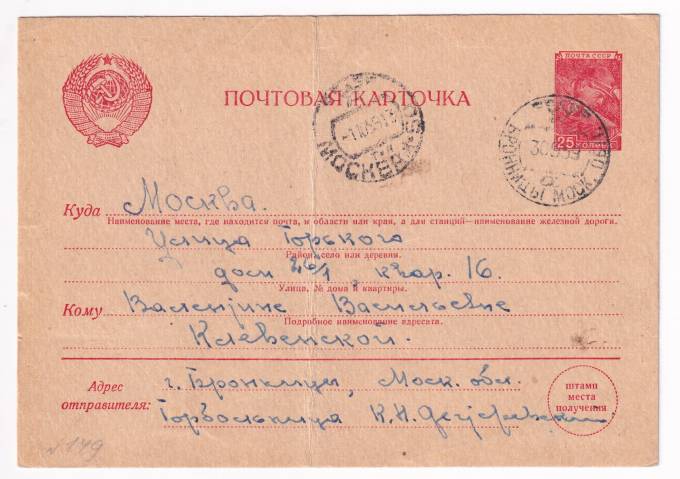 ПОЧТА СССР
25 КОПЕЕК
ПОЧТОВАЯ КАРТОЧКА
МОСКВА
БРОННИЦЫ МОСК. ОБЛ.
Куда Москва.
Наименование места, где находится почта, и области или края, а для станций—наименование железной дороги.
Улица Горького
Район, село или деревня.
дом 26/1, квар. 16.
Улица, № дома и квартиры.
Кому Валентине Васильевне
Подробное наименование адресата.
Клевенской.
Адрес отправителя:
г. Бронницы, Моск. обл.
Горбольница К. Н.
штамп
места
получения
№ 149